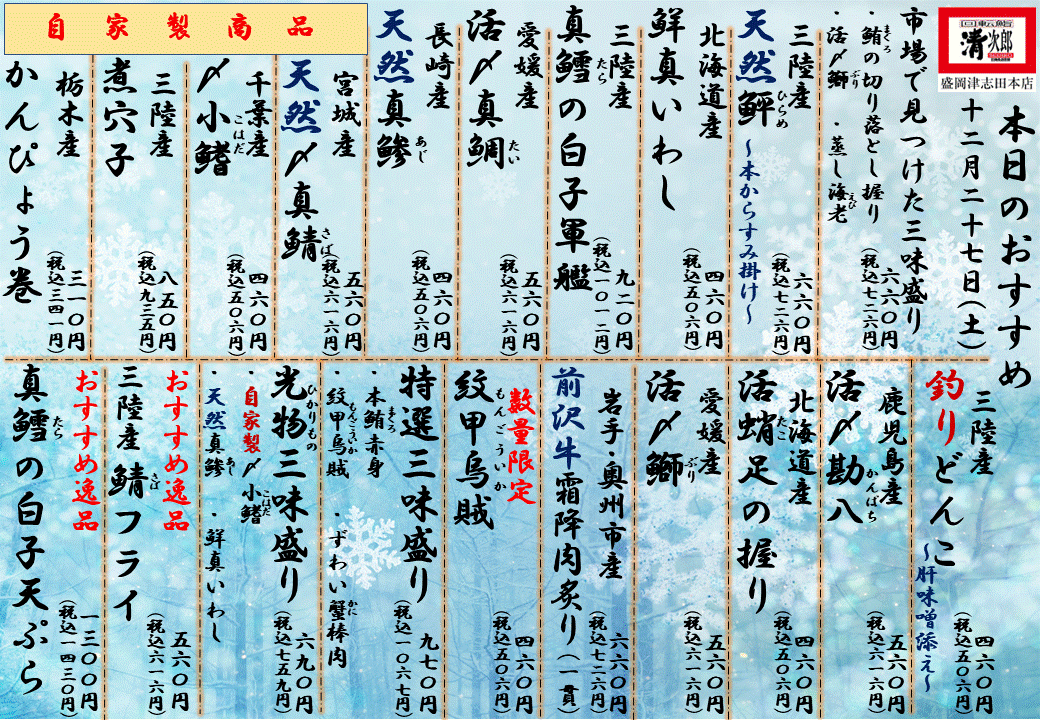 回転鮨
清次郎
盛岡津志田本店
本日のおすすめ
十二月二十七日(土)
市場で見つけた三味盛り
・鮪の切り落とし握り
まぐろ
・活〆鰤 ・蒸し海老
ぶり
えび
六六〇円
(税込七二六円)
三陸産
天然鮃
ひらめ
~本からすみ掛け~
六六〇円
(税込七二六円)
北海道産
鮮真いわし
四六〇円
(税込五〇六円)
三陸産
真鱈の白子軍艦
たら
九二〇円
(税込一〇一二円)
愛媛産
活〆真鯛
たい
五六〇円
(税込六一六円)
長崎産
天然真鯵
あじ
四六〇円
(税込五〇六円)
自家製商品
宮城産
天然〆真鯖
さば
五六〇円
(税込六一六円)
千葉産
〆小鰭
こはだ
四六〇円
(税込五〇六円)
三陸産
煮穴子
八五〇円
(税込九三五円)
栃木産
かんぴょう巻
三一〇円
(税込三四一円)
三陸産
釣りどんこ
~肝味噌添え~
四六〇円
(税込五〇六円)
鹿児島産
活〆勘八
かんぱち
五六〇円
(税込六一六円)
北海道産
活蛸足の握り
たこ
四六〇円
(税込五〇六円)
愛媛産
活〆鰤
ぶり
五六〇円
(税込六一六円)
岩手・奥州市産
前沢牛霜降肉炙り(一貫)
六六〇円
(税込七二六円)
数量限定
紋甲烏賊
もんごういか
四六〇円
(税込五〇六円)
特選三味盛り
・本鮪赤身
まぐろ
・紋甲烏賊 ・ずわい蟹棒肉
もんごういか
かに
九七〇円
(税込一〇六七円)
光物三味盛り
ひかりもの
・自家製〆小鰭
こはだ
・天然真鯵 ・鮮真いわし
あじ
六九〇円
(税込七五九円)
おすすめ逸品
三陸産 鯖フライ
さば
五六〇円
(税込六一六円)
おすすめ逸品
真鱈の白子天ぷら
たら
一三〇〇円
(税込一四三〇円)